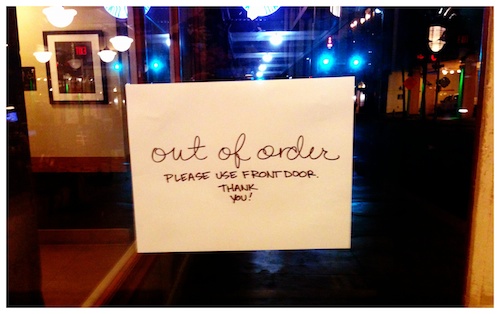 out of order
PLEASE USE FRONT DOOR.
THANK
YOU!